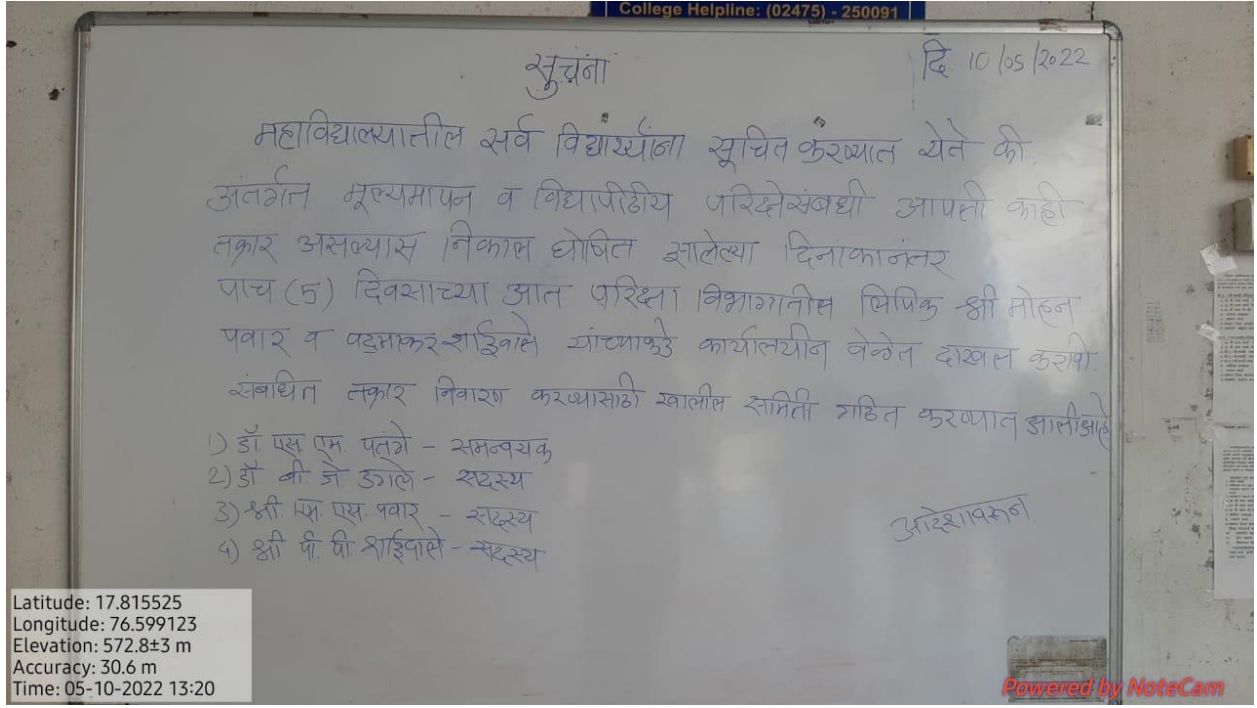 College Helpline: (02475) - 250091
सूचना
दि. 10/05/2022
महाविद्यालयातील सर्व विद्यार्थ्यांना सूचित करण्यात येते की,
अंतर्गत मूल्यमापन व विद्यापीठीय परिक्षेसंबधी आपली काही
तक्रार असल्यास निकाल घोषित झालेल्या दिनांकानंतर
पाच (5) दिवसाच्या आत परिक्षा विभागातील लिपिक श्री मोहन
पवार व पद्माकर शाईवाले यांच्याकडे कार्यालयीन वेळेत दाखल करावी.
संबधित तक्रार निवारण करण्यासाठी खालील समिती गठित करण्यात आली आहे
1) डॉ. एस. एम. पतंगे - समन्वयक
2) डॉ बी. जे उगले - सदस्य
3) श्री एम. एस. पवार - सदस्य
4) श्री पी. पी शाईवाले - सदस्य
आदेशावरून
Latitude: 17.815525
Longitude: 76.599123
Elevation: 572.8±3 m
Accuracy: 30.6 m
Time: 05-10-2022 13:20
Powered by NoteCam